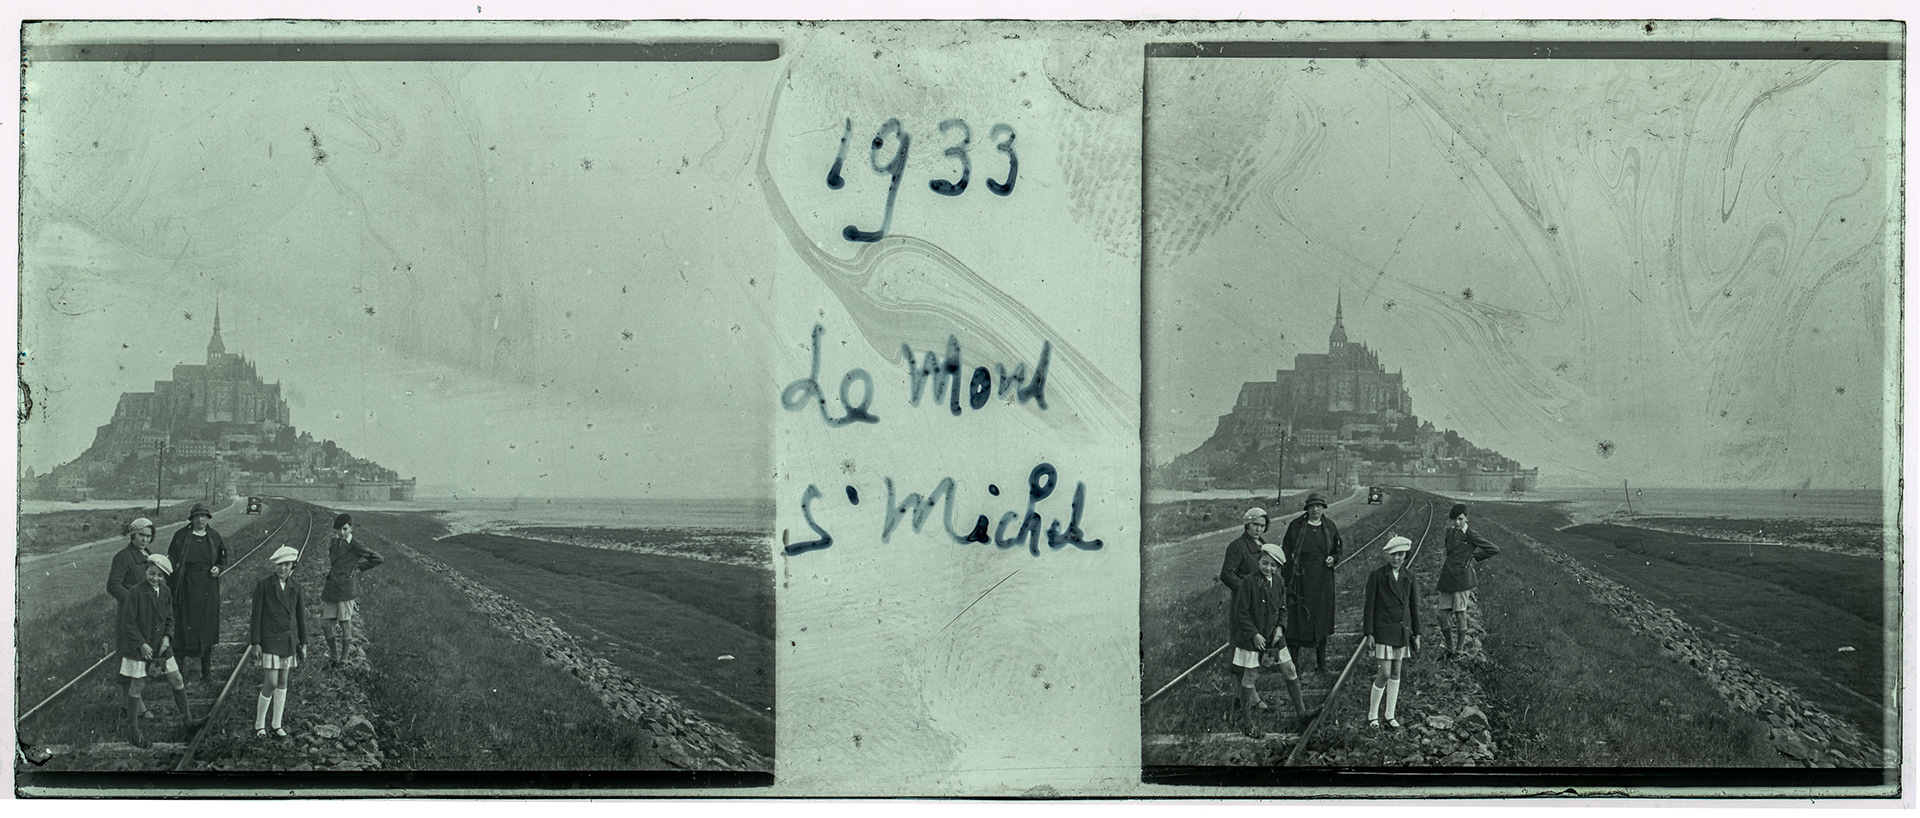 1933
Le Mont
St Michel